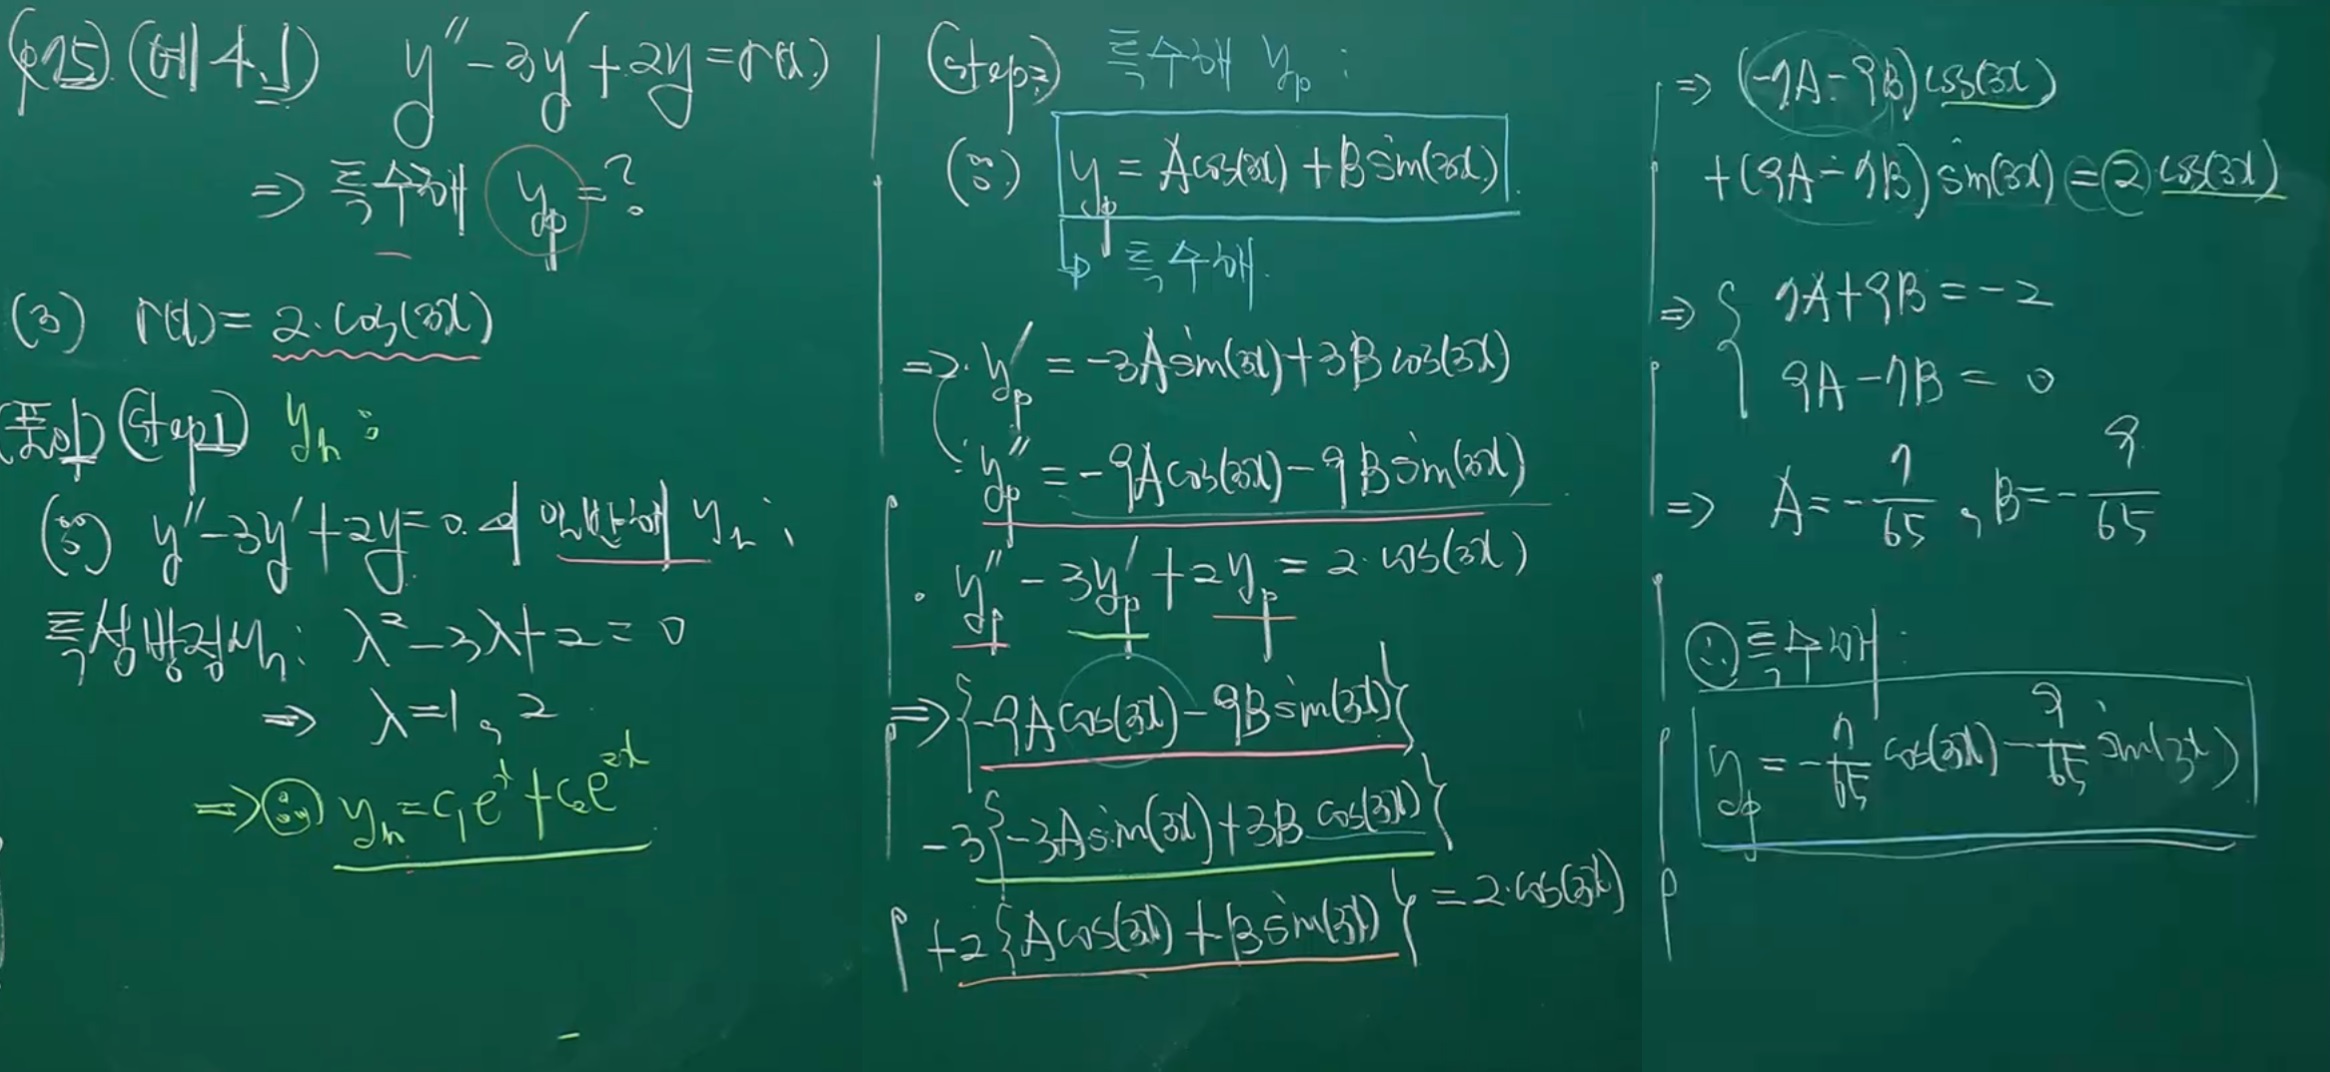 (p75) (예 4.1) y'' - 3y' + 2y = r(x)
⇒ 특수해 y_p = ?
(3) r(x) = 2·cos(3x)
(풀이) (step1) y_h :
(ⅰ) y'' - 3y' + 2y = 0.의 일반해 y_h ;
특성방정식: λ² - 3λ + 2 = 0
⇒ λ = 1, 2
⇒ ∴ y_h = c₁e^x + c₂e^{2x}
(step2) 특수해 y_p :
y_p = Acos(3x) + Bsin(3x)
↳ 특수해.
⇒ · y_p' = -3Asin(3x) + 3Bcos(3x)
· y_p'' = -9Acos(3x) - 9Bsin(3x)
· y_p'' - 3y_p' + 2y_p = 2·cos(3x)
⇒ {-9Acos(3x) - 9Bsin(3x)}
-3{-3Asin(3x) + 3Bcos(3x)}
+2{Acos(3x) + Bsin(3x)} = 2·cos(3x)
⇒ (-7A - 9B)cos(3x)
+ (9A - 7B)sin(3x) = 2·cos(3x)
⇒ { 7A + 9B = -2
9A - 7B = 0
⇒ A = -7/65, B = -9/65
∴ 특수해 :
y_p = -7/65 cos(3x) - 9/65 sin(3x)